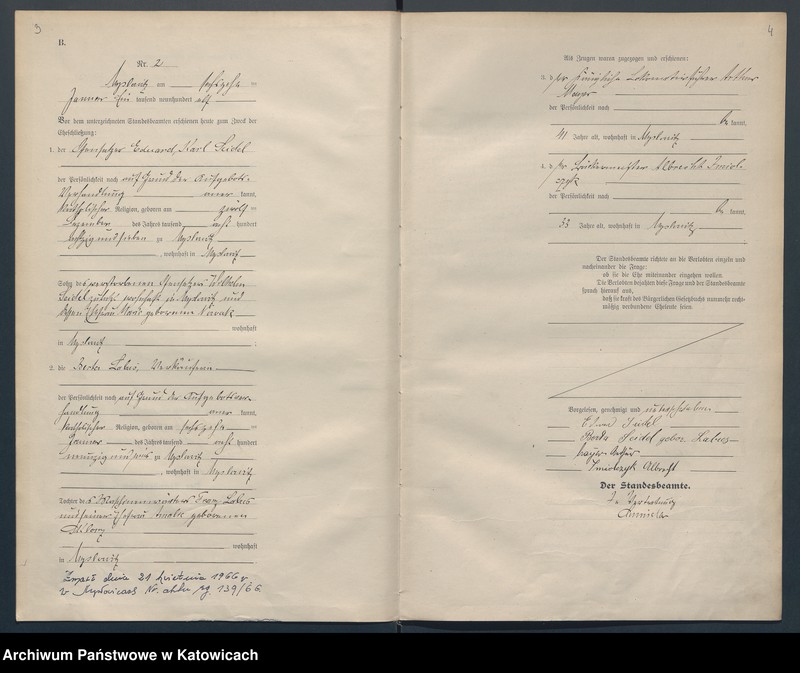 3
B.
Nr. 2
Myslowitz am sechszehn ten
Januar ein tausend neunhundert elf
Vor dem unterzeichneten Standesbeamten erschienen heute zum Zweck der
Eheschließung:
1. der Ofensetzer Eduard, Karl Seidel
der Persönlichkeit nach auf Grund der Aufgebots-
Verhandlung aner kannt,
katholischer Religion, geboren am zwölf ten
Dezember des Jahres tausend acht hundert
achtzig und sieben zu Myslowitz
, wohnhaft in Myslowitz
Sohn des verstorbenen Ofensetzers Wilhelm
Seidel zuletzt wohnhaft in Myslowitz und
dessen Ehefrau Marie geborenen
wohnhaft
in Myslowitz
2. die Berta Labus, Verkäuferin
der Persönlichkeit nach auf Grund der Aufgebotsver-
handlung aner kannt,
katholischer Religion, geboren am sechszehn ten
Januar des Jahres tausend acht hundert
neunzig und zu Myslowitz
, wohnhaft in Myslowitz
Tochter des Franz Labus
und seiner Ehefrau geborenen
wohnhaft
in Myslowitz
Zmarł dnia 21 kwietnia 1966 r
w Mysłowicach Nr. aktu zg. 139/66.
4
Als Zeugen waren zugezogen und erschienen:
3. der Königliche Lokomotivführer Arthur
Mayer
der Persönlichkeit nach
be kannt,
41 Jahre alt, wohnhaft in Myslowitz
4. der Bäckermeister Albrecht Smiol-
czyk
der Persönlichkeit nach
be kannt,
33 Jahre alt, wohnhaft in Myslowitz
Der Standesbeamte richtete an die Verlobten einzeln und
nacheinander die Frage:
ob sie die Ehe miteinander eingehen wollen.
Die Verlobten bejahten diese Frage und der Standesbeamte
sprach hierauf aus,
daß sie kraft des Bürgerlichen Gesetzbuchs nunmehr recht-
mäßig verbundene Eheleute seien.
Vorgelesen, genehmigt und unterschrieben
Eduard Seidel
Berta Seidel gebor. Labus
Mayer Arthur
Smiolczyk Albrecht
Der Standesbeamte.
In Vertretung
Archiwum Państwowe w Katowicach